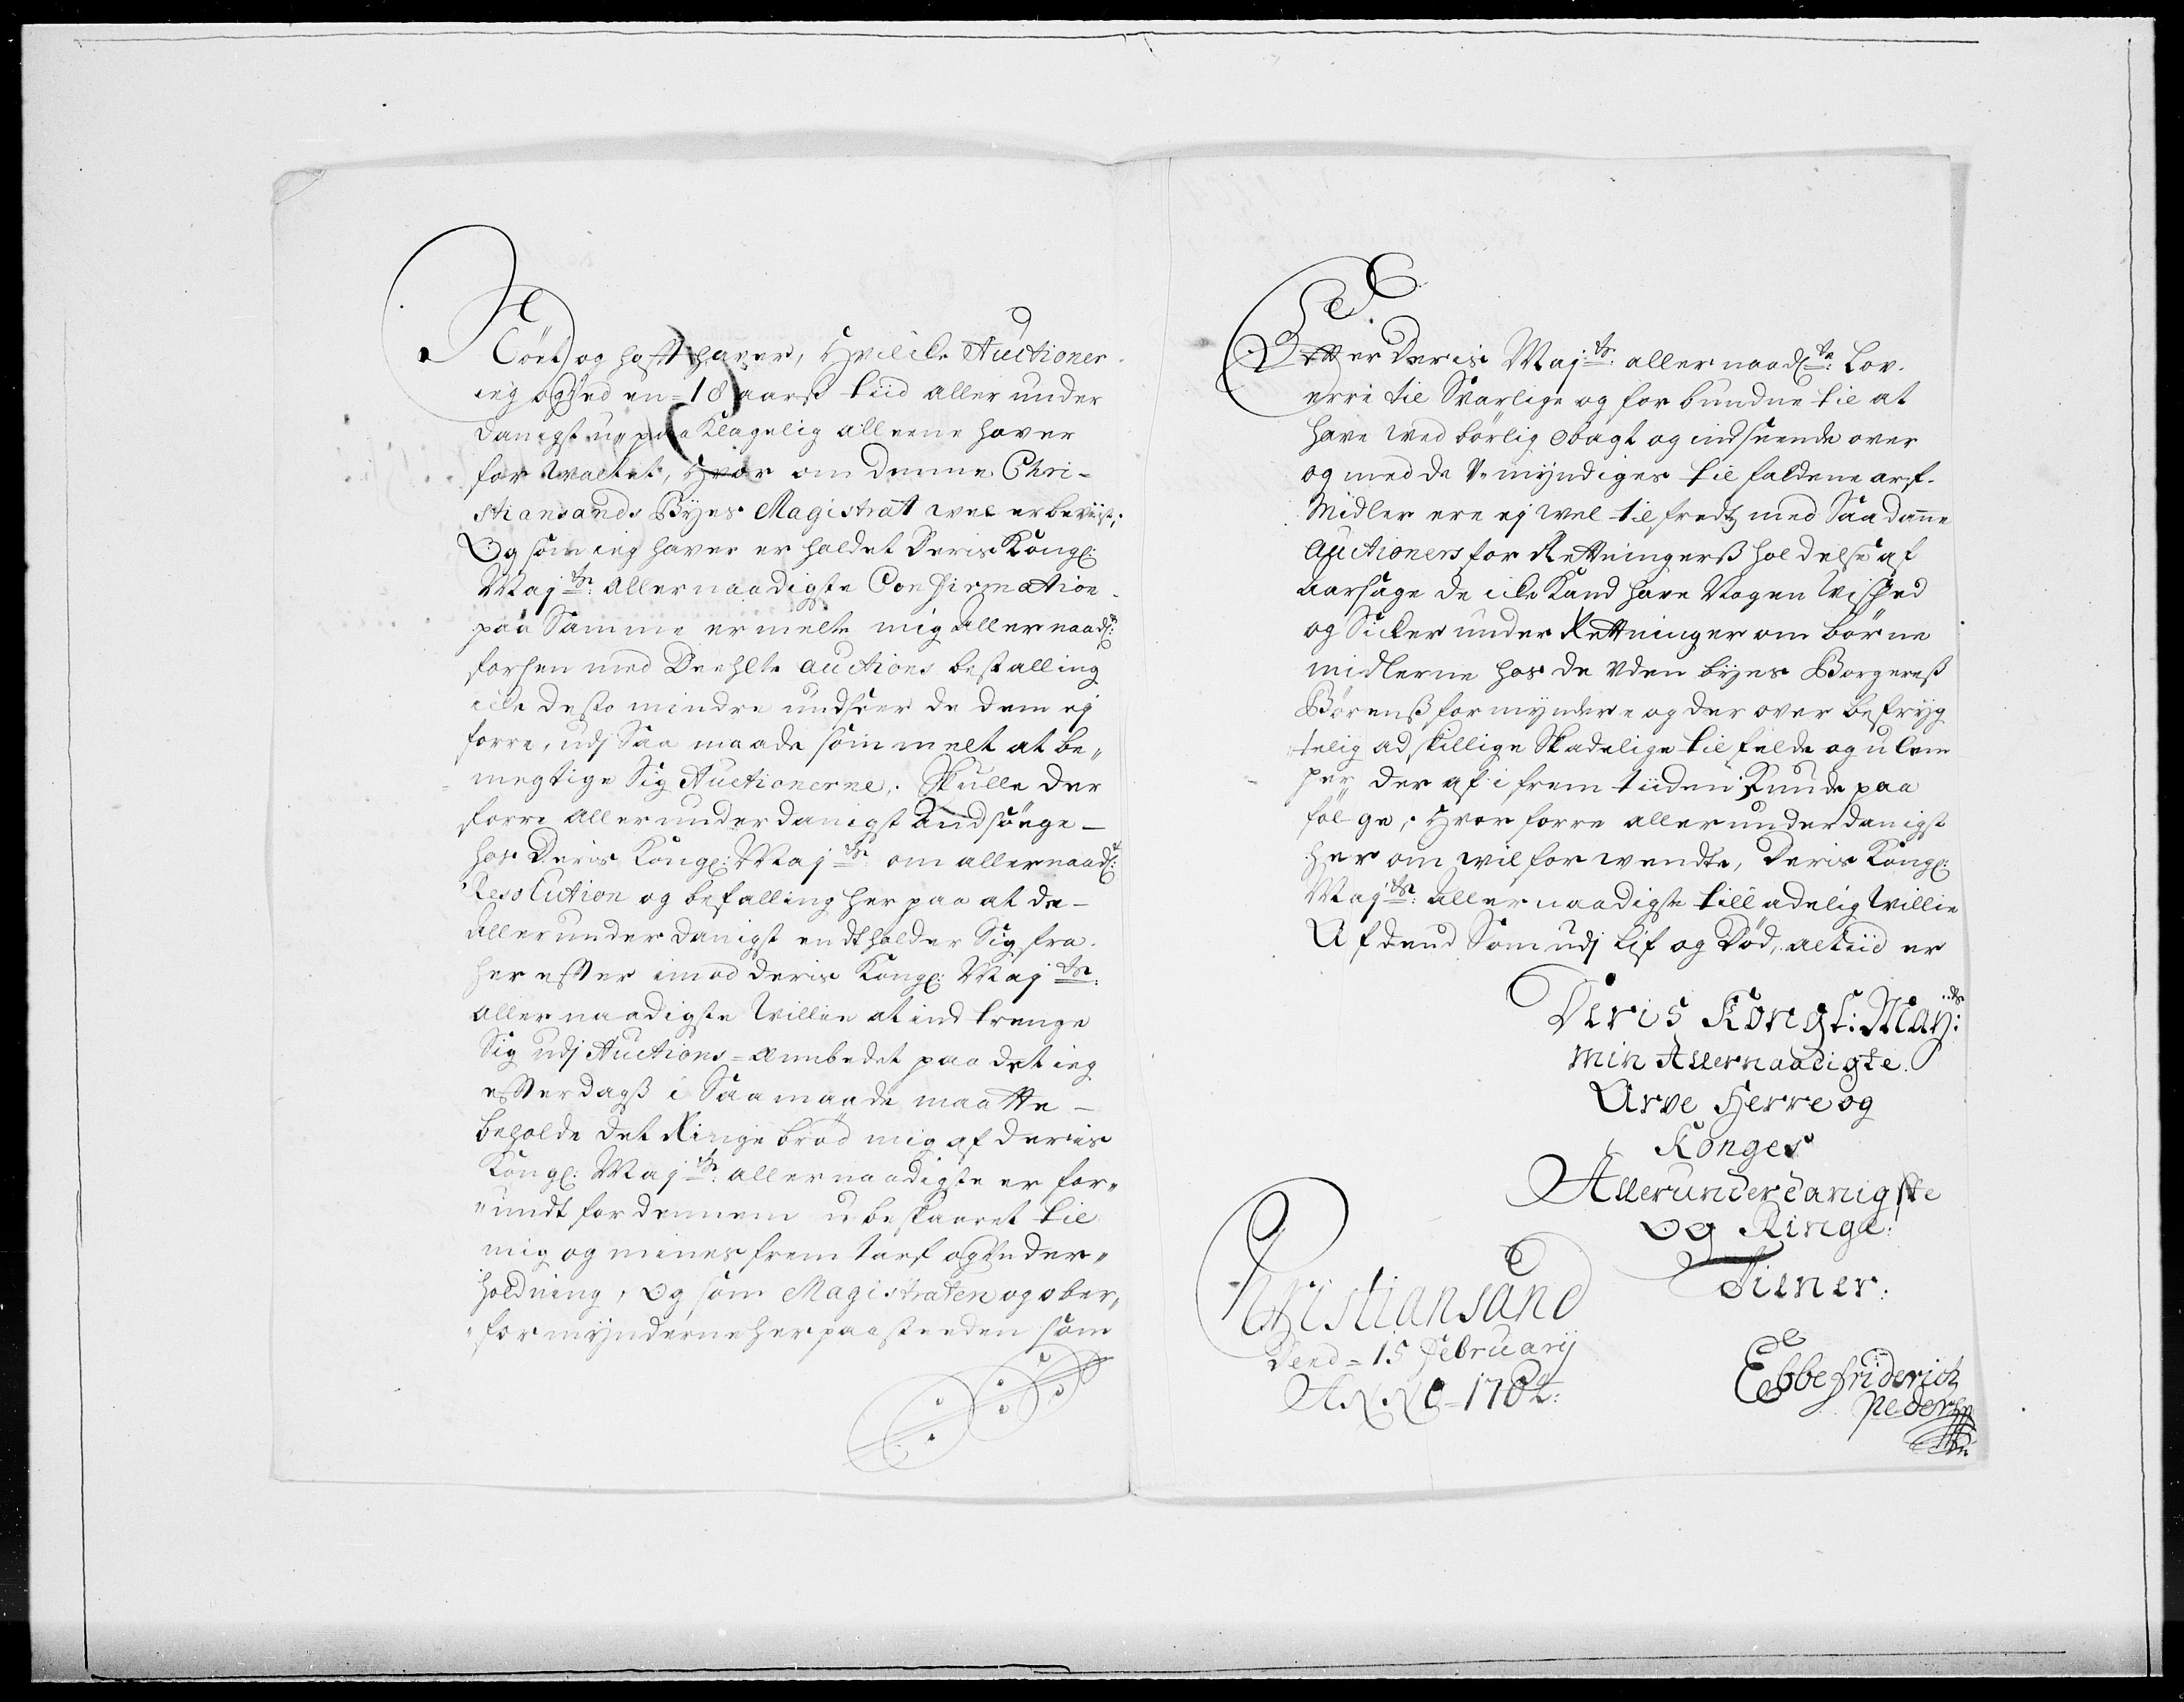 Giört og hafft haver, Hvilcke Auctioner
ieg og hed en = 18 aars tiid aller under
danigst u-paa Klagelig alleene haver
for waltet, Hvor om denne Chri-
stiansands Byes Magistrat wel er beviist,
Og som ieg haver er holdet Deris Kongl:
Maj:ts: allernaadigste Confirmation
paa Samme ermelte mig allernaad:
forhen med Deehlte auctions bestalling
icke desto mindre undseer de dem ej
forre, udj Saa maade som melt at be„
megtige Sig Auctionerne. Skulle der
forre allerunderdanigst andsöege -
hos Deris Kongl: Maj:ts om allernaad:
Resolution og befalling her paa at de -
allerunderdanigst endtholder Sig fra
her effter imod deris Kongl: Maj:ts:
allernaadigste Willie at ind trenge
Sig udj Auctions = Æmbedet paa det ieg
effterdags i Saamaade maatte -
beholde det Ringe bröd mig af deris
Kongl: Maj:ts: allernaadigste er for„
„undt for dennem ubeskaaret til
mig og mines frem tarf og Under„
holdning, Og som Magistraten og ober„
„formynderne her paa steeden som
Effter Deris Maj:ts: allernaad:te: Lov
erre til Svarlige og for bundne til at
have wed börlig obagt og indseende over
og med de U-myndiges til faldene arf
Midler ere ej wel tilfredtz med Saadanne
Auctioners for Rettningers holdelse af
aarsage de icke Kand have Nogen Vished
og Sicker under Rettninger om börne
midlerne hos de Uden byes Borgeres
Börns formyndere og der over befryg
telig adskillige Skadelige til felde og ulem
per der af i frem tiiden Kunde paa
fölge, Hvor forre allerunderdanigst
her om wil for wendte, Deris Kongl:
Maj:ts: allernaadigste till adelig Willie
Af dend Som udj Lif og Död, altiid er
Deris Kongl: May:ts
min Allernaadigste
Arve Herre og
Konges
Allerunderdanigste
og Ringe
Tiener:
Christiansand
Dend = 15 February
ANNO = 1702:
Ebbe friderich
Pedersen